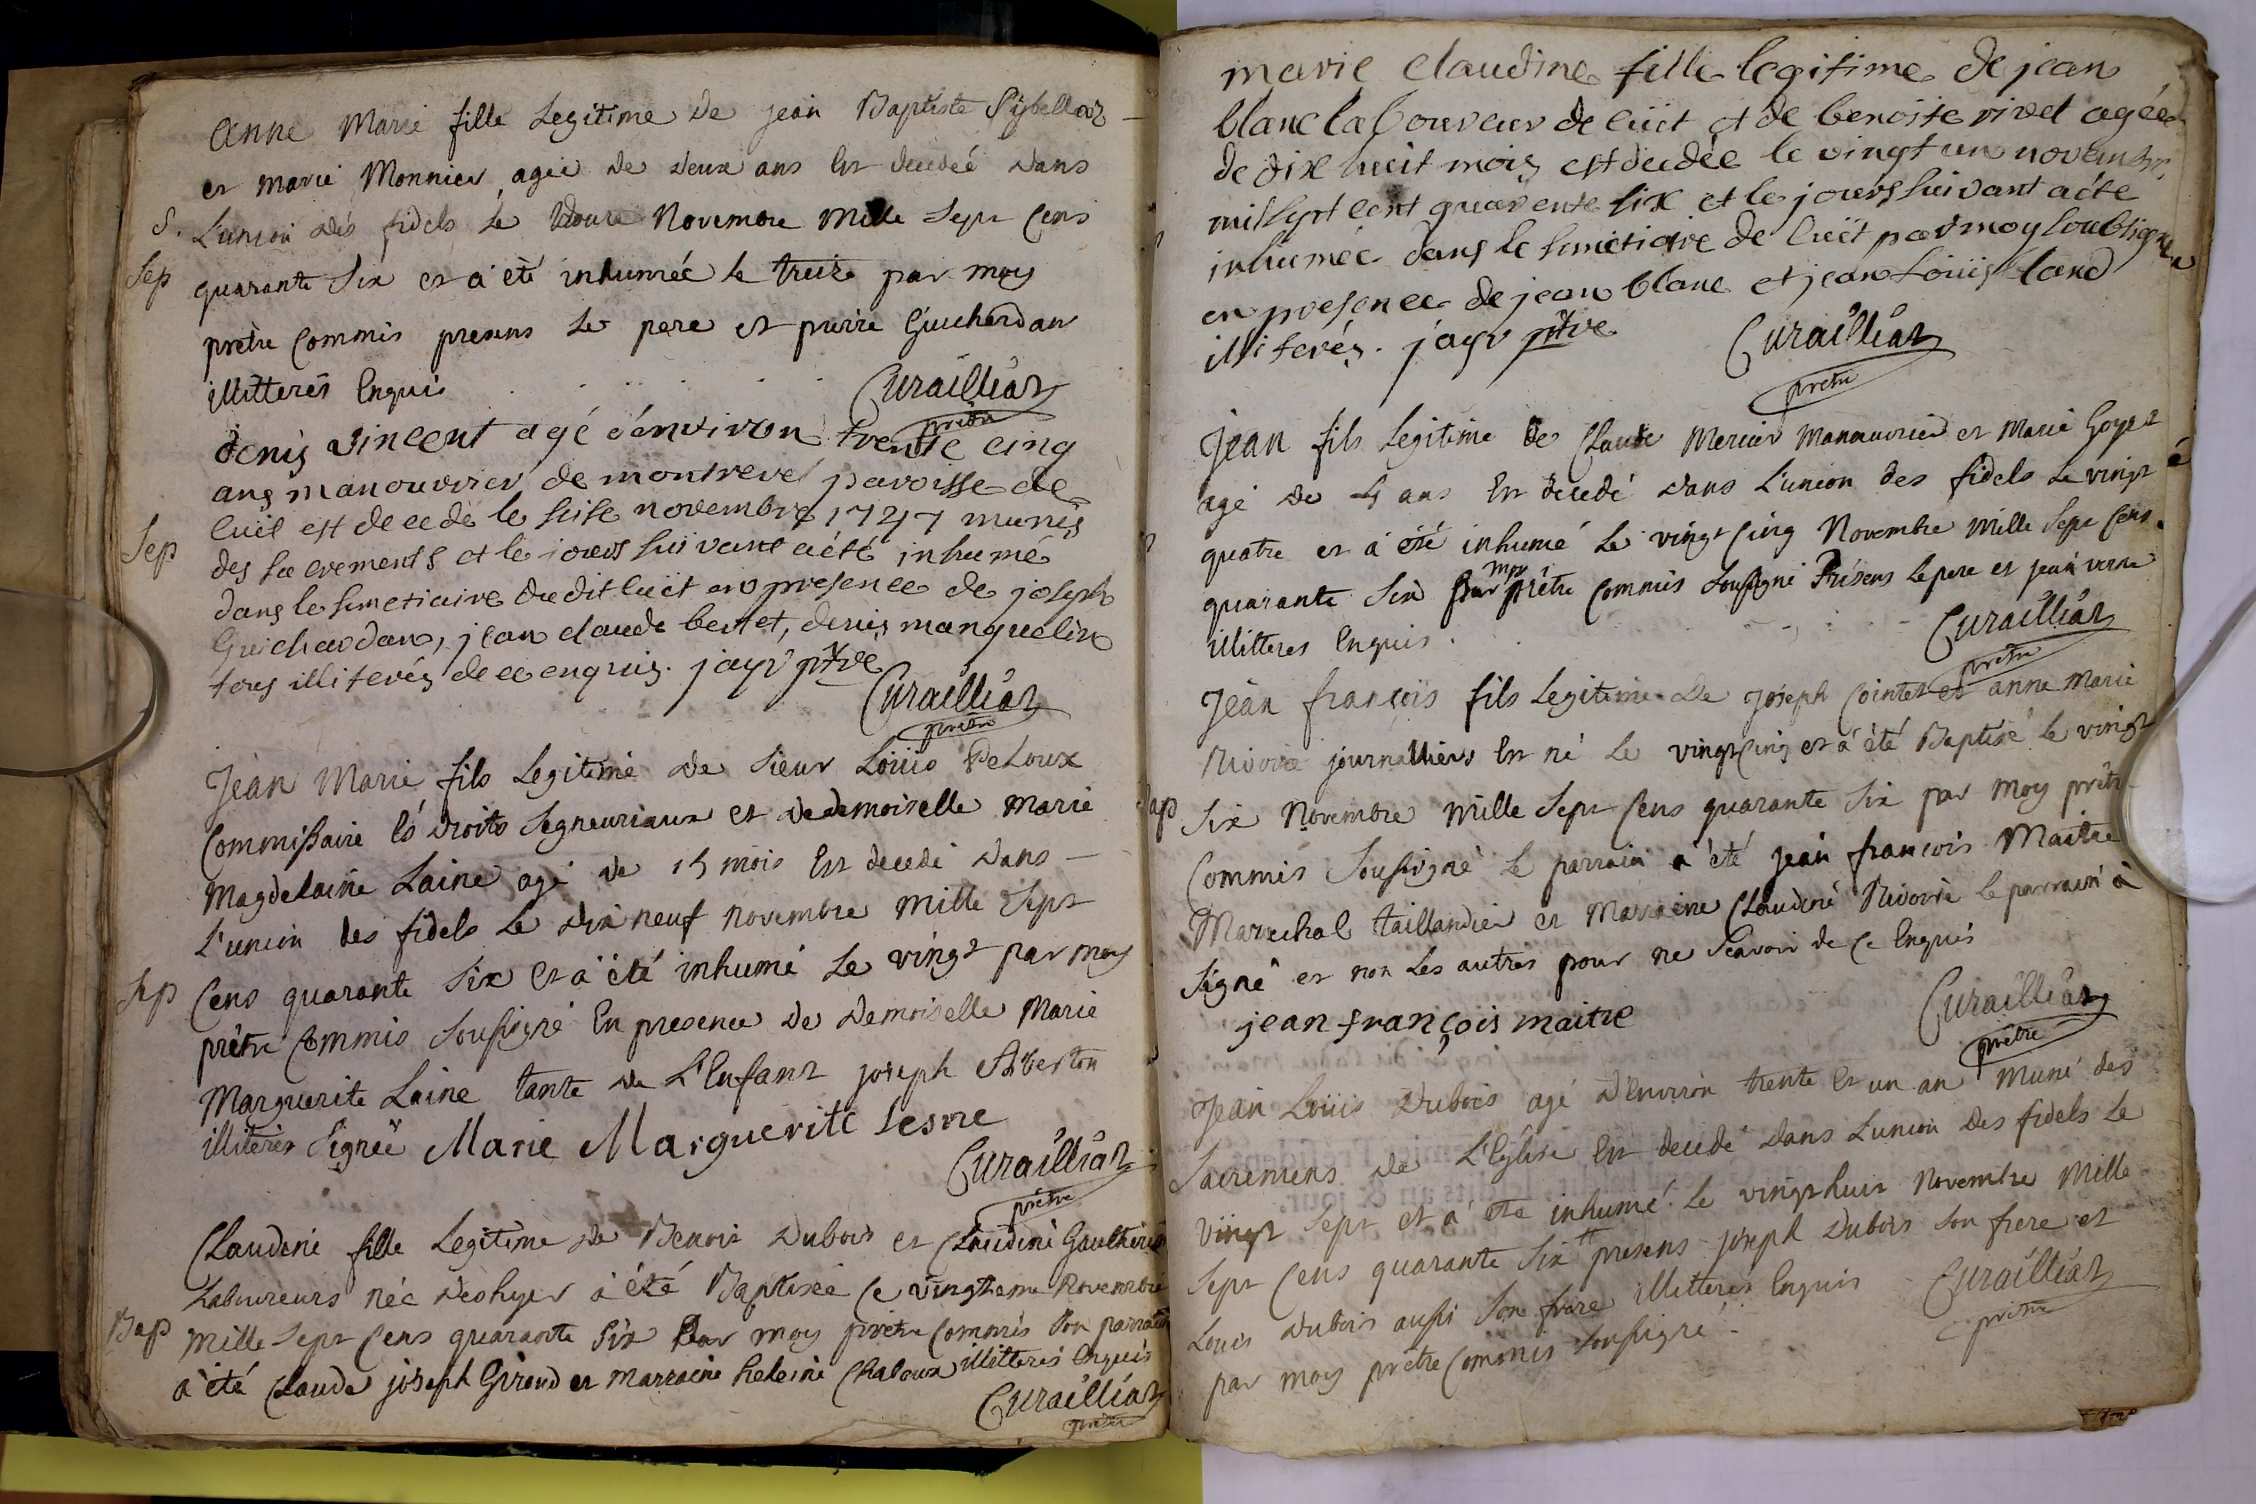 Anne Marie fille Legitime de jean Baptiste Pisbellooz
et marie Monnier agee de deux ans Est decedeé dans
S. L'union dés fidels le douze Novembre Mille Sept Cens
Sep quarante Six et a été inhumeé le treize par moy
prêtre Commis presens le pere et pierre Guichardan
illitterés Enquis
Curailliaz
prêtre
denis vincent agé d'environ trente cinq
ans manouvrier de montrevel paroisse de
Cuet est decede le seise novembre 1747 munis
Sep des sacrements et le jours suivant a été inhumé
dans le simetiaire dudit cuet en presence de joseph
Guichardan, jean claude bertet, denis manquelin
tous illiterés de ce enquis. jayr ptre
Curailliaz
prêtre
Jean Marie fils Legitime de Sieur Loüis Deloux
Commissaire és droits Segneuriaux et de demoiselle Marie
Magdelaine Laine agé de 15 mois Est decedé dans
L'union des fidels le dix neuf novembre mille Sept
Sep Cens quarante Six et a été inhumé le vingt par moy
prêtre Commis Soussigné En presence de demoiselle Marie
Marguerite Laine tante de L'Enfant joseph Alberton
illiterés Signeé Marie Marguerite Lesne
Curailliaz
prêtre
Claudine fille Legitime de Benoit Dubois et Claudine Gaultier
Laboureurs née deshyer a été Baptisée ce vingtieme Novembre
Bap Mille Sept Cens quarante Six Par moy prêtre Commis Son parrain
a été Claude joseph Giroud et marraine heleine Chaloux illitterés Enquis
Curailliaz
prêtre
marie claudine fille legitime de jean
blanc laboureur de cüet et de benoite rivet agée
de dix huit mois est decedée le vingt un novembre
mil sept cent quarente six et le jours suivant a été
inhumée dans le simetiaire de cuët par moy soubsigné
en presence de jean blanc et jean Loüis land
illiterés. jayr ptre
Curailliaz
prêtre
Jean fils Legitime de Claude Mercier Manouvrier et Marie Goyet
agé de 4 ans Est decedé dans L'union des fidels le vingt
quatre et a été inhumé le vingt Cinq Novembre Mille Sept Cens
quarante Six Par moy prêtre Commis Soussigné Présens le pere et jean verne
illitteres Enquis.
Curailliaz
prêtre
Jean françois fils Legitime de Joseph Cointet et anne Marie
Nivoire journalliers Est né le vingt Cinq et a été Baptisé le vingt
Bap Six Novembre Mille Sept Cens quarante Six par moy prêtre
Commis Soussigné le parrain a été jean francois Maitre
Marechal taillandier et Marraine Claudine Nivoire le parrain à
Signé et non les autres pour ne Scavoir de ce Enquis
jean françois maitre
Curailliaz
prêtre
Jean Loüis Dubois agé d'Environ trente et un an Muni des
Sacremens de L'Eglise Est decedé dans L'union des fidels le
vingt Sept et a été inhumé le vingt huit Novembre Mille
Sept Cens quarante Six presens joseph Dubois Son frere et
Louis Dubois aussi Son frere illitterés Enquis
par moy prêtre Commis Soussigné.
Curailliaz
prêtre